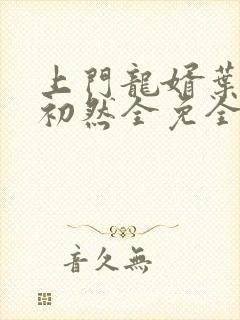 上門龍婿葉
初然全免全
音久無